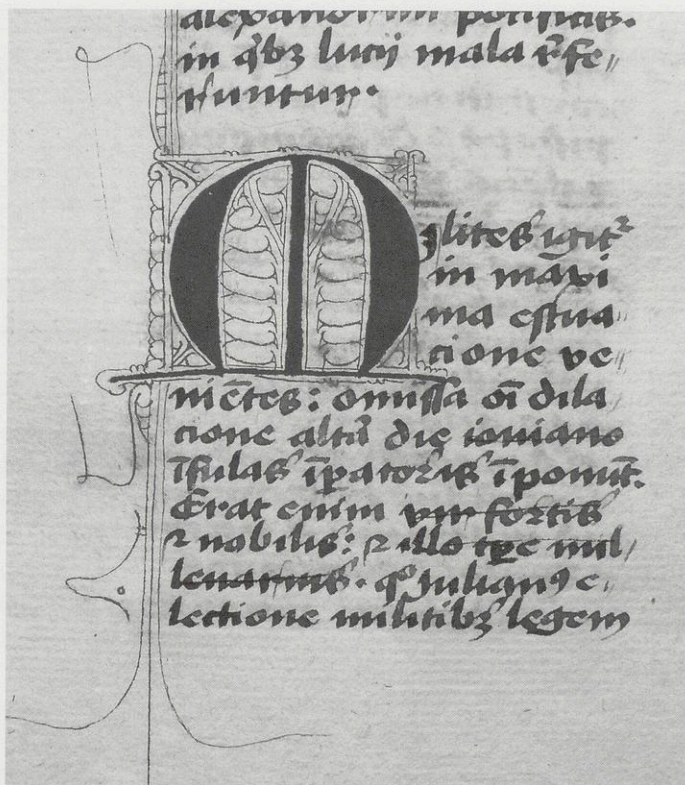 alexandri pontificis.
in qͥbꝫ lucij mala r̄fe„
runtur.
Milites igit᷑
in māxi
ma estua„
cione ve„
niētes: omissa oī dila„
cione altā die iouiano
īfulas īꝑatoris īponūt.
Erat enim vir fortis
⁊ nobilis: ⁊ illo tꝑe mil„
lenarius. qͦ Julianꝰ e„
lectione militibꝫ legem